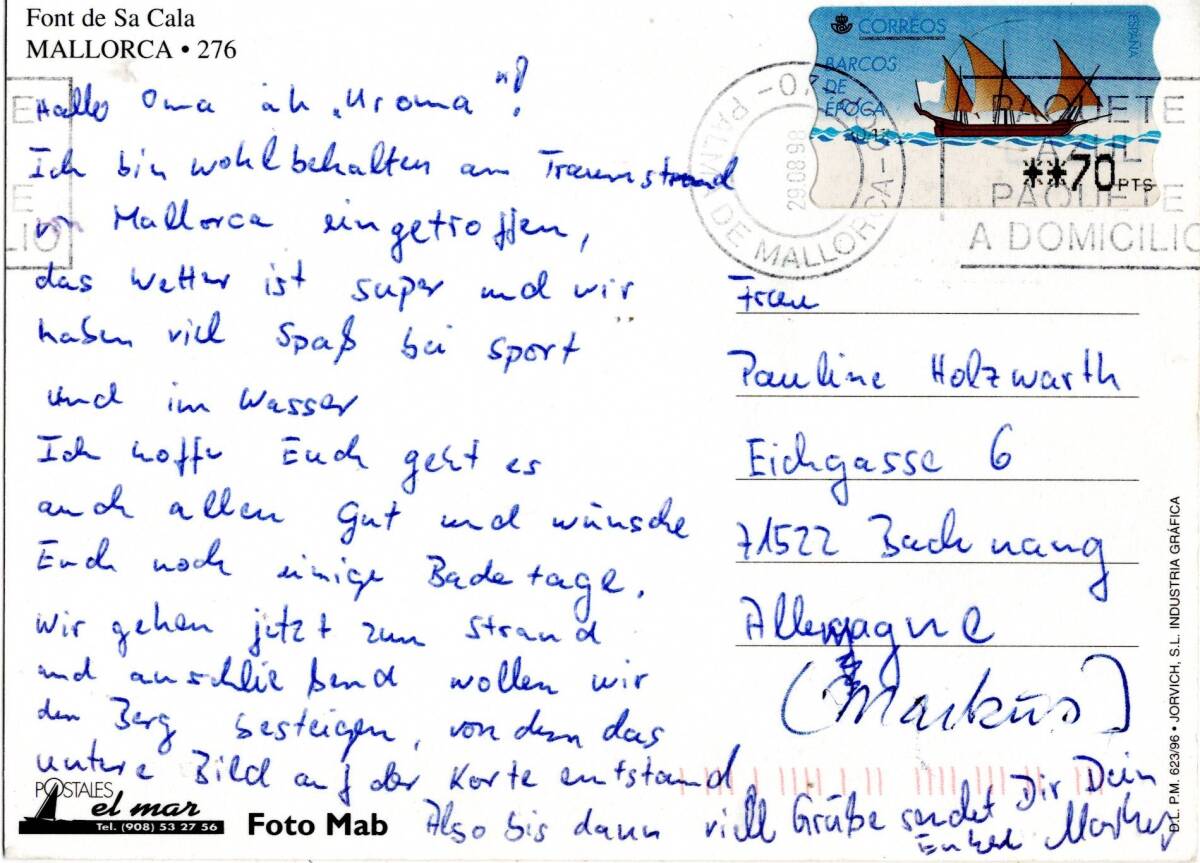 Font de Sa Cala
MALLORCA • 276
Hallo Oma äh „Uroma"!
Ich bin wohlbehalten am Traumstrand
von Mallorca eingetroffen,
das Wetter ist super und wir
haben viel Spaß bei Sport
und im Wasser
Ich hoffe Euch geht es
auch allen Gut und wünsche
Euch noch einige Badetage.
Wir gehen jetzt zum Strand
und anschließend wollen wir
den Berg besteigen, von dem das
untere Bild auf der Karte entstand
Also bis dann viele Grüße sendet Dir Dein
Enkel Markus
POSTALES
el mar
Tel. (908) 53 27 56
Foto Mab
CORREOS
ESPAÑA
BARCOS
DE
ÉPOCA
**70 PTS
PALMA DE MALLORCA
29.08.98
PAQUETE
PAQUETE
A DOMICILIO
Frau
Pauline Holzwarth
Eichgasse 6
71522 Backnang
Allemagne
(Markus)
D.L. P.M. 623/96 • JORVICH, S.L. INDUSTRIA GRÁFICA